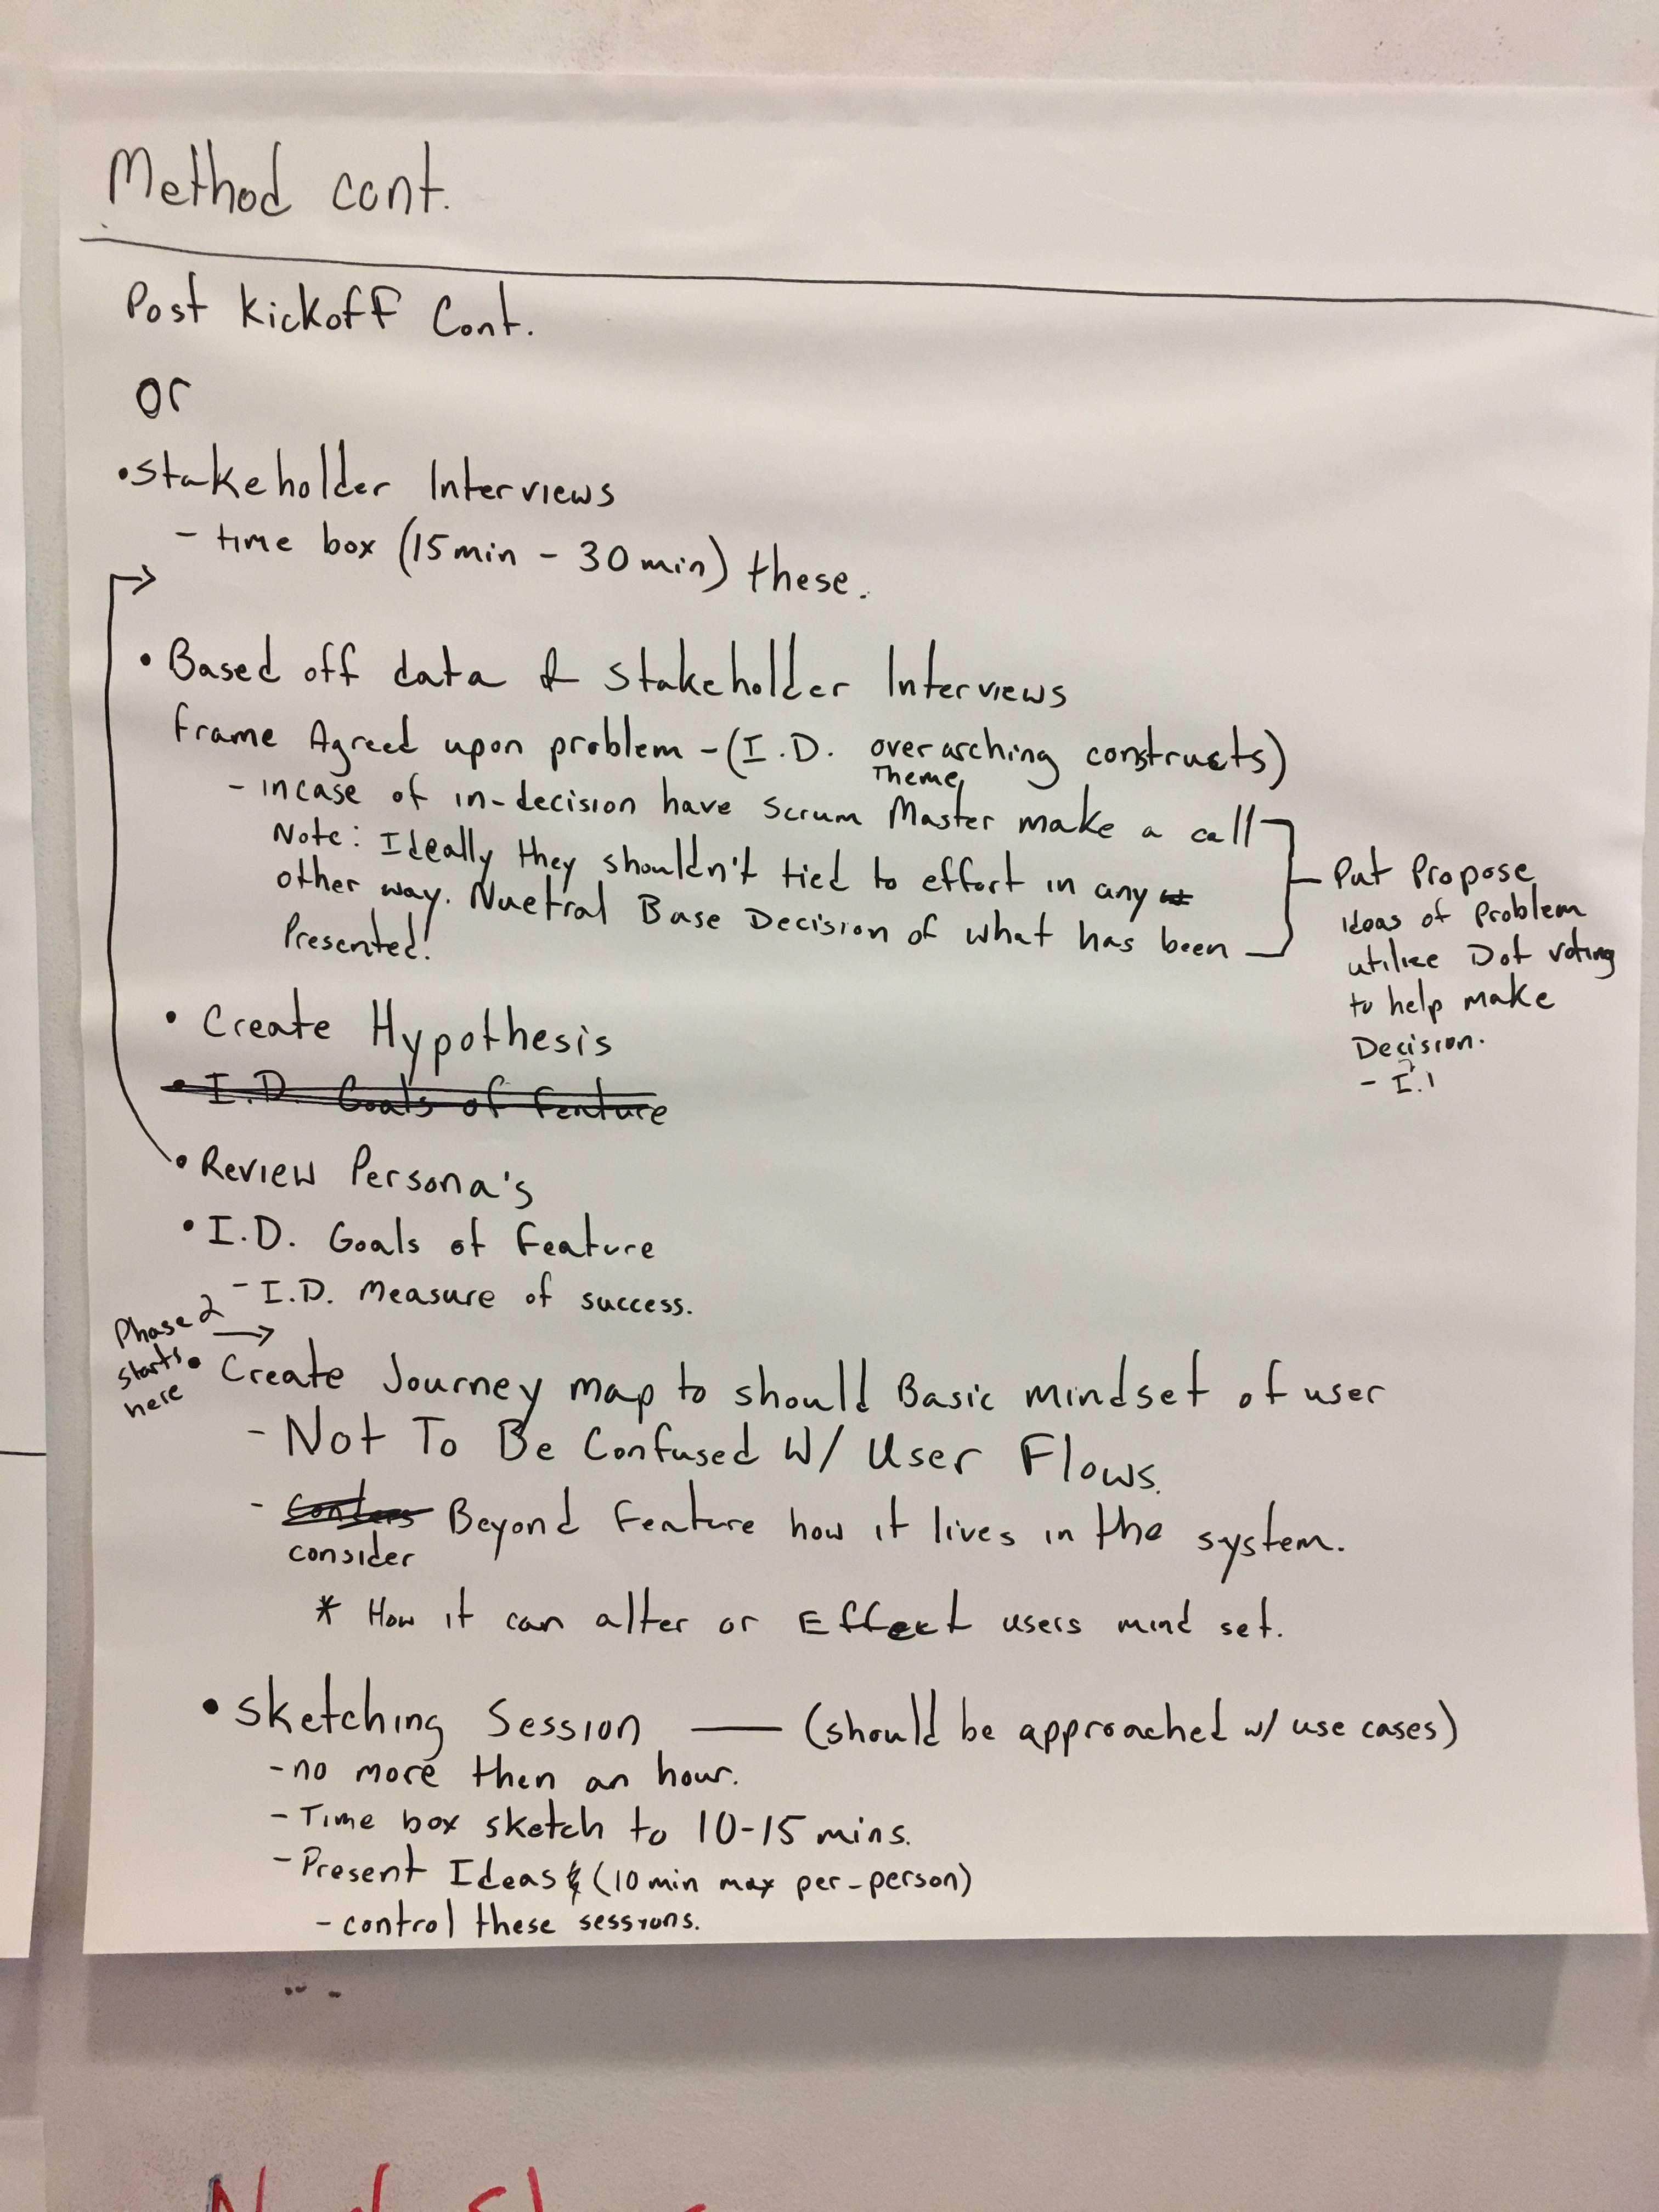 Method cont.
Post Kickoff Cont.
or
• Stakeholder Interviews
- time box (15min - 30min) these.
• Based off data & Stakeholder Interviews
Frame Agreed upon problem - (I.D. overarching constructs)
Theme
- incase of in-decision have Scrum Master make a call
Note: Ideally they shouldn't tied to effort in any
other way. Nuetral Base Decision of what has been
Presented!
Put Propose
Ideas of Problem
utilize Dot voting
to help make
Decision.
- I.1
• Create Hypothesis
• I.D. Goals of Feature
• Review Persona's
• I.D. Goals of Feature
- I.D. Measure of success.
Phase 2
starts
here
• Create Journey map to should Basic mindset of user
- Not To Be Confused W/ User Flows.
- Beyond Feature how it lives in the system.
consider
* How it can alter or Effect users mind set.
• Sketching Session — (should be approached w/ use cases)
- no more then an hour.
- Time box sketch to 10-15 mins.
- Present Ideas (10 min max per-person)
- control these sessions.